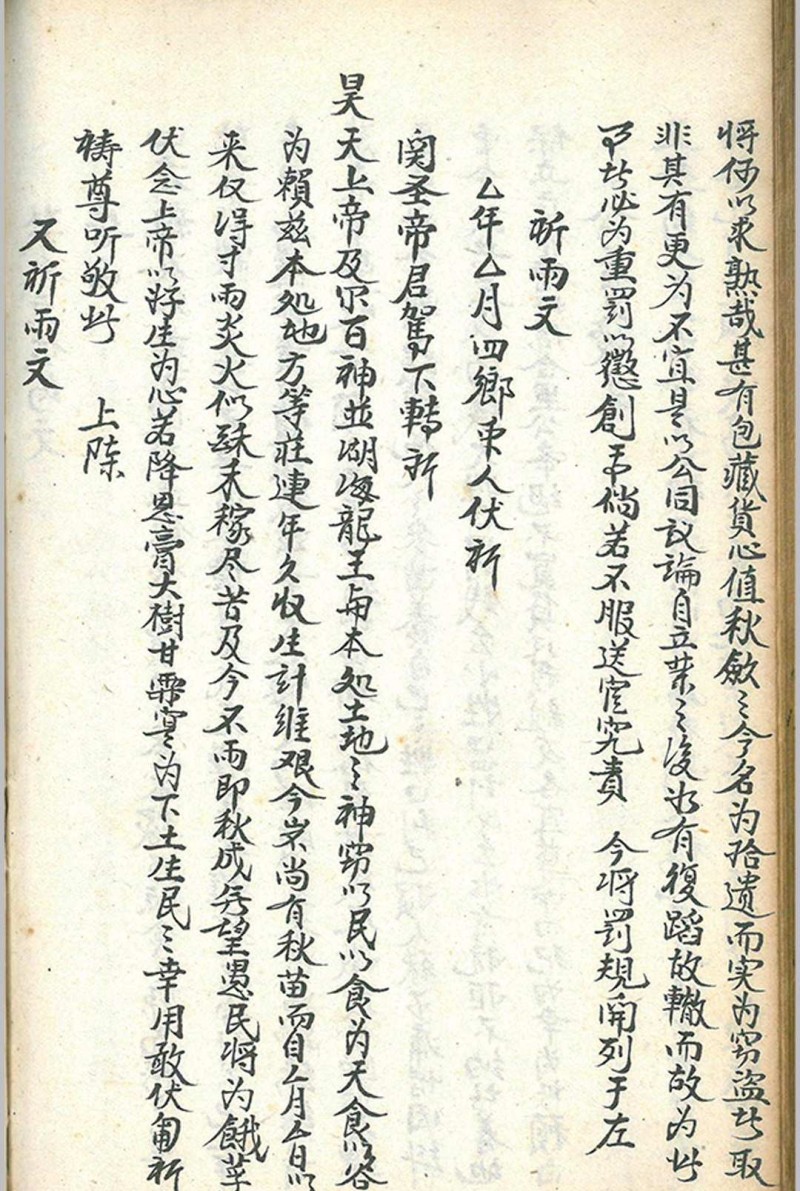 将何以求熟哉甚有包藏貨心值秋斂之今名为拾遺而实为窃盗者取
非其有更为不宜是以公同议論自立禁之後如有復蹈故轍而故为者
即必为重罰以懲創乎倘若不服送官究責 今将罰規開列于左
祈雨文
厶年厶月四鄉眾人伏祈
関圣帝君駕下轉祈
昊天上帝及尔百神並湖海龍王與本处土地之神窃以民以食为天食以谷
为賴兹本处地方等莊連年久收生計維艰今岁尚有秋苗而自厶月厶日以
来仅得寸雨炎火似珠禾稼尽昔及今不雨即秋成無望愚民将为餓莩
伏念上帝以好生为心若降恩膏大樹甘霖寔为下土生民之幸用敢伏匍祈
祷尊听敬此 上陈
又祈雨文